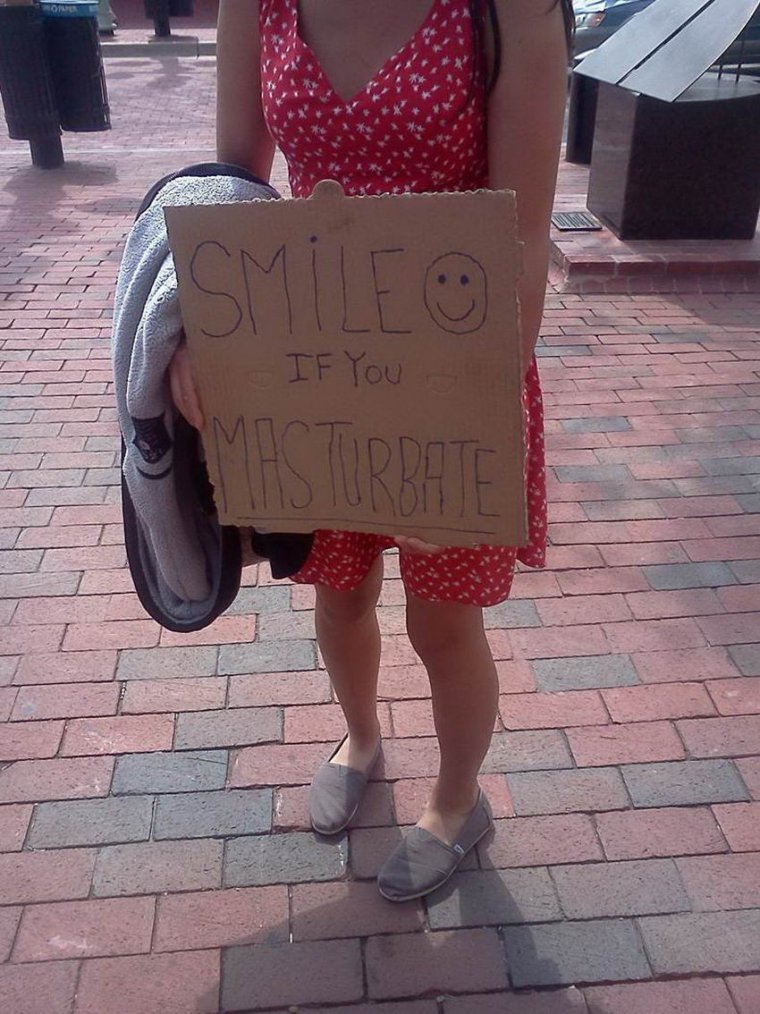 SMiLE
IF YOU
MASTURBATE
PAPER